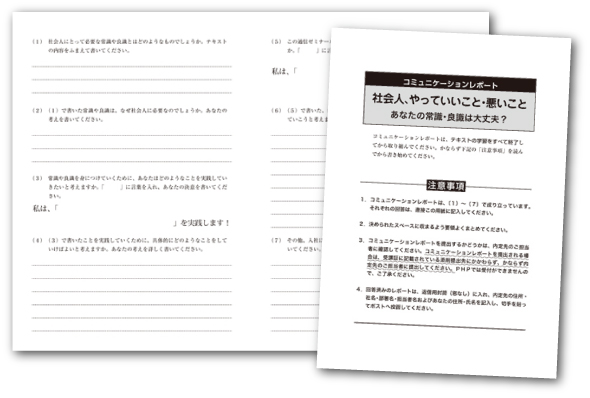 (1) 社会人にとって必要な常識や良識とはどのようなものでしょうか。テキスト
の内容をふまえて書いてください。
(2) (1)で書いた常識や良識は、なぜ社会人に必要なのでしょうか。あなたの
考えを書いてください。
(3) 常識や良識を身につけていくために、あなたはどのようなことを実践してい
きたいと考えますか。「　　」に言葉を入れ、あなたの決意を書いてくださ
い。
私は、「
」を実践します！
(4) (3)で書いたことを実践していくために、具体的にどのようなことをして
いけばよいと考えますか。あなたの考えを詳しく書いてください。
(5) この通信ゼミナー
か。「　　」に言
私は、「
(6) (5)で書いた、
ていこうと考えま
(7) その他、入社に
いてください。
コミュニケーションレポート
社会人、やっていいこと・悪いこと
あなたの常識・良識は大丈夫？
コミュニケーションレポートは、テキストの学習をすべて終了し
てから取り組んでください。かならず下記の「注意事項」を読ん
でから書き始めてください。
注意事項
1．コミュニケーションレポートは、(1)～(7)で成り立っています。
それぞれの回答は、直接この用紙に記入してください。
2．決められたスペースに収まるよう要領よくまとめてください。
3．コミュニケーションレポートを提出するかどうかは、内定先のご担当
者に確認してください。コミュニケーションレポートを提出される場
合は、受講証に記載されている添削提出先にかかわらず、かならず内
定先のご担当者に提出してください。PHPでは受付ができませんの
で、ご了承ください。
4．回答済みのレポートは、返信用封筒（窓なし）に入れ、内定先の住所・
社名・部署名・担当者名およびあなたの住所・氏名を記入し、切手を貼っ
てポストへ投函してください。